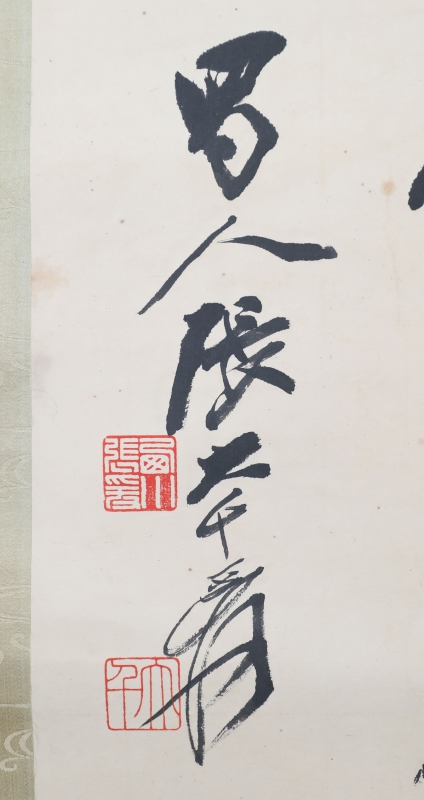 蜀人張大千爰
蜀川張爰
大千